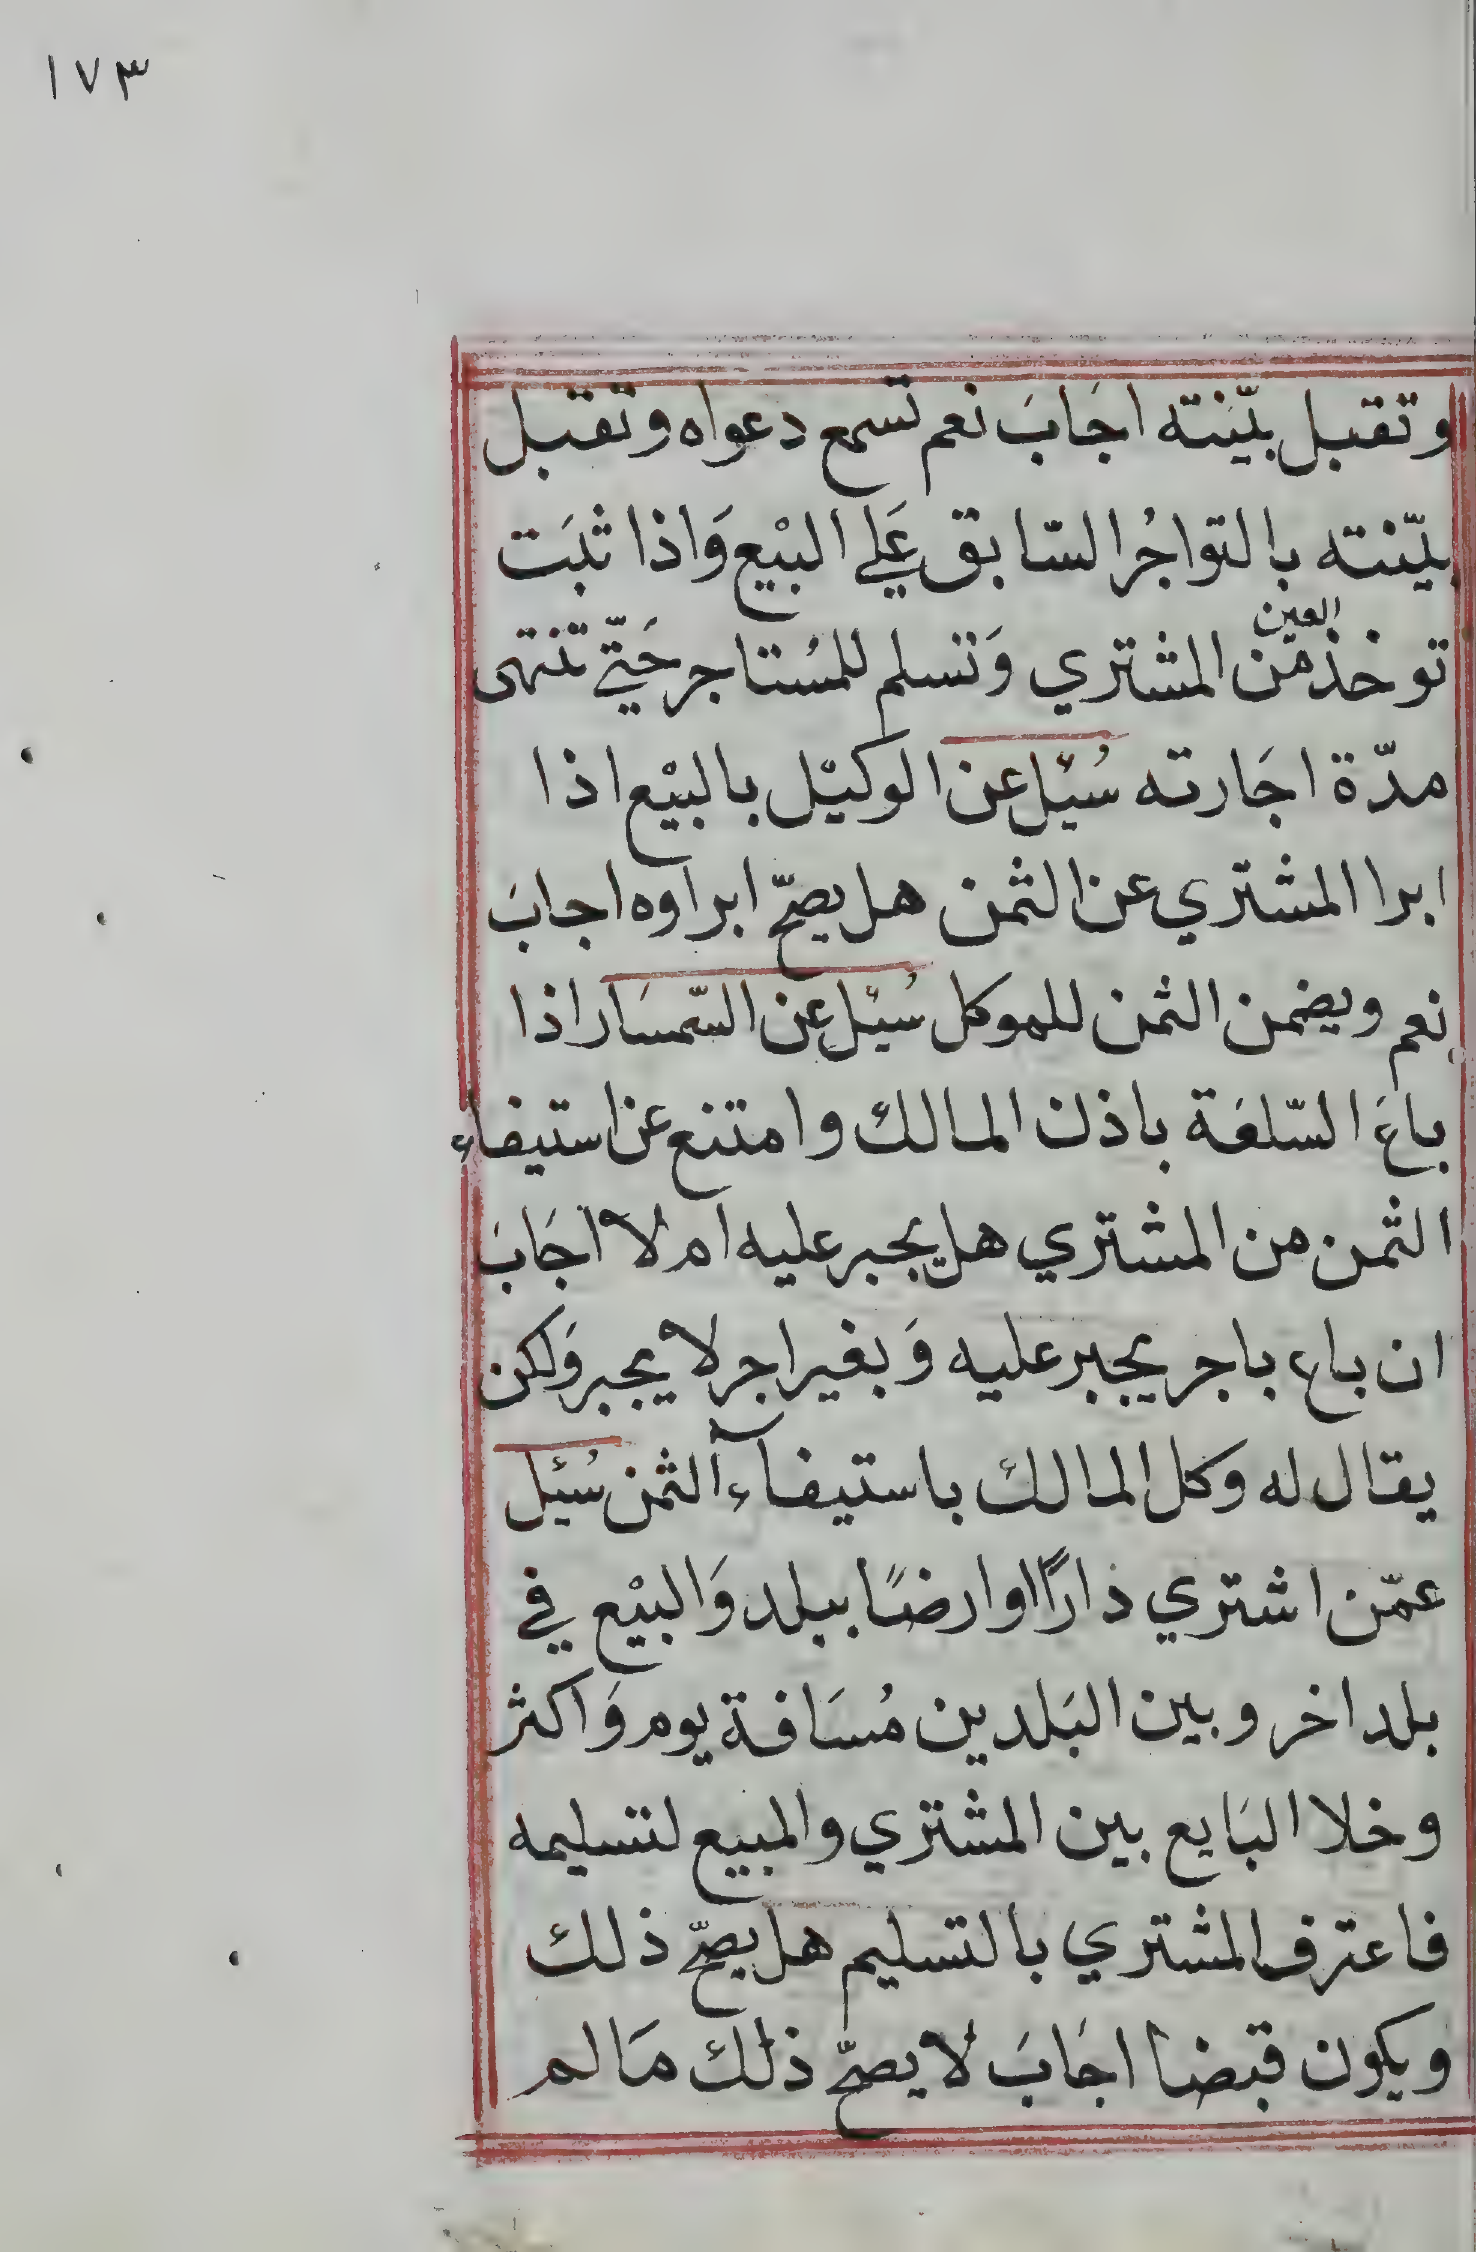 ١٧٣
وتقبل بيّنته اجَابَ نعم تسمع دعواه وتقبل
بيّنته بالتواجُر السّابق عَلي البيْع وَاذا ثبَت
توخذ العين من المشتري وَتسلم للمُستاجر حَتّي تنتهى
مدّة اجَارته سُئِل عن الوكيْل بالبيْع اذا
ابرا المشتري عن الثمن هل يصحّ ابراوه اجابَ
نعم ويضمن الثمن للموكل سُئِل عن السّمسَار اذا
باعَ السّلعَة باذن المالك وامتنع عن استيفاء
الثمن من المشتري هل يجبر عليه ام لا اجَابَ
ان باع باجر يجبر عليه وَبغير اجر لا يجبر وَلكن
يقال له وكل المالك باستيفآء الثمن سُئِل
عمّن اشتري دارًا او ارضًا ببلد وَالبيْع في
بلد اخر وبين البَلدين مُسَافة يوم وَاكثر
وخلا البَايع بين المشتري والمبيع لتسليمه
فاعترف المشتري بالتسليم هل يصحّ ذلك
ويكون قبضا اجَابَ لا يصحّ ذلك مَا لم